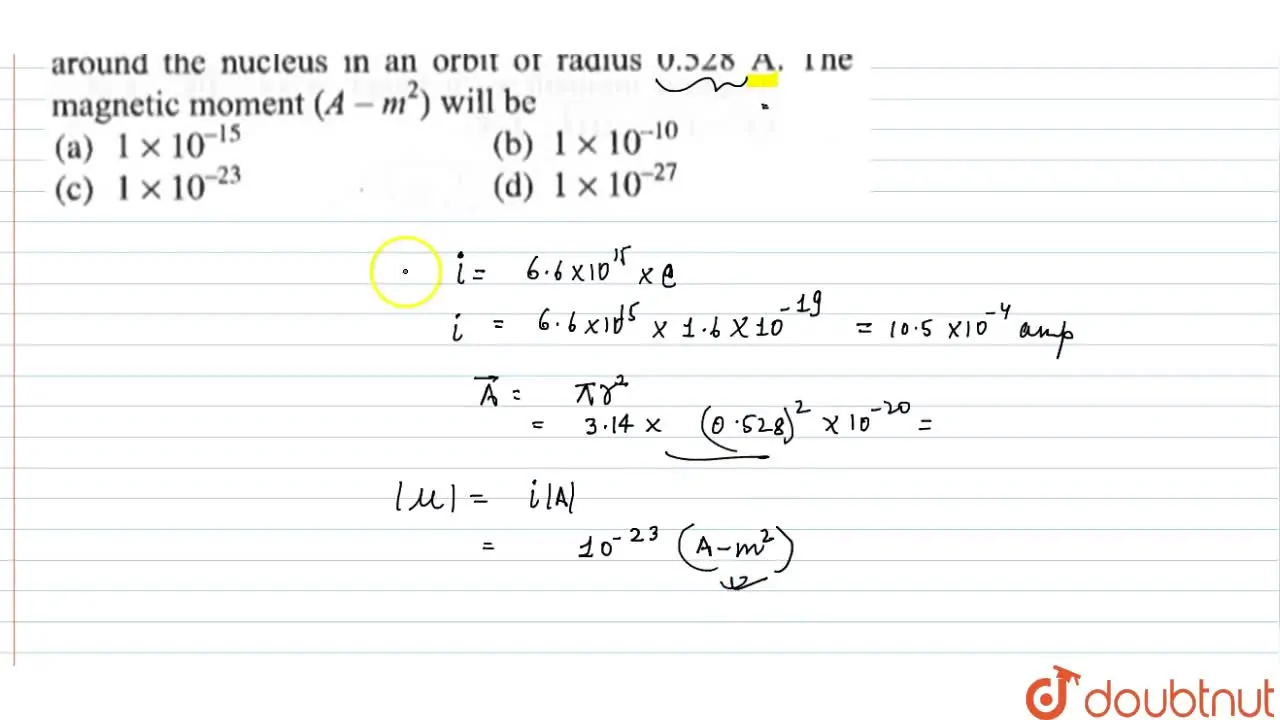 around the nucleus in an orbit of radius 0.528 A. The
magnetic moment (A – m²) will be
(a) 1 × 10⁻¹⁵ (b) 1 × 10⁻¹⁰
(c) 1 × 10⁻²³ (d) 1 × 10⁻²⁷
i = 6.6 × 10¹⁵ × e
i = 6.6 × 10¹⁵ × 1.6 × 10⁻¹⁹ = 10.5 × 10⁻⁴ amp
A⃗ = πr²
= 3.14 × (0.528)² × 10⁻²⁰ =
|μ| = i|A|
= 10⁻²³ (A – m²)
doubtnut